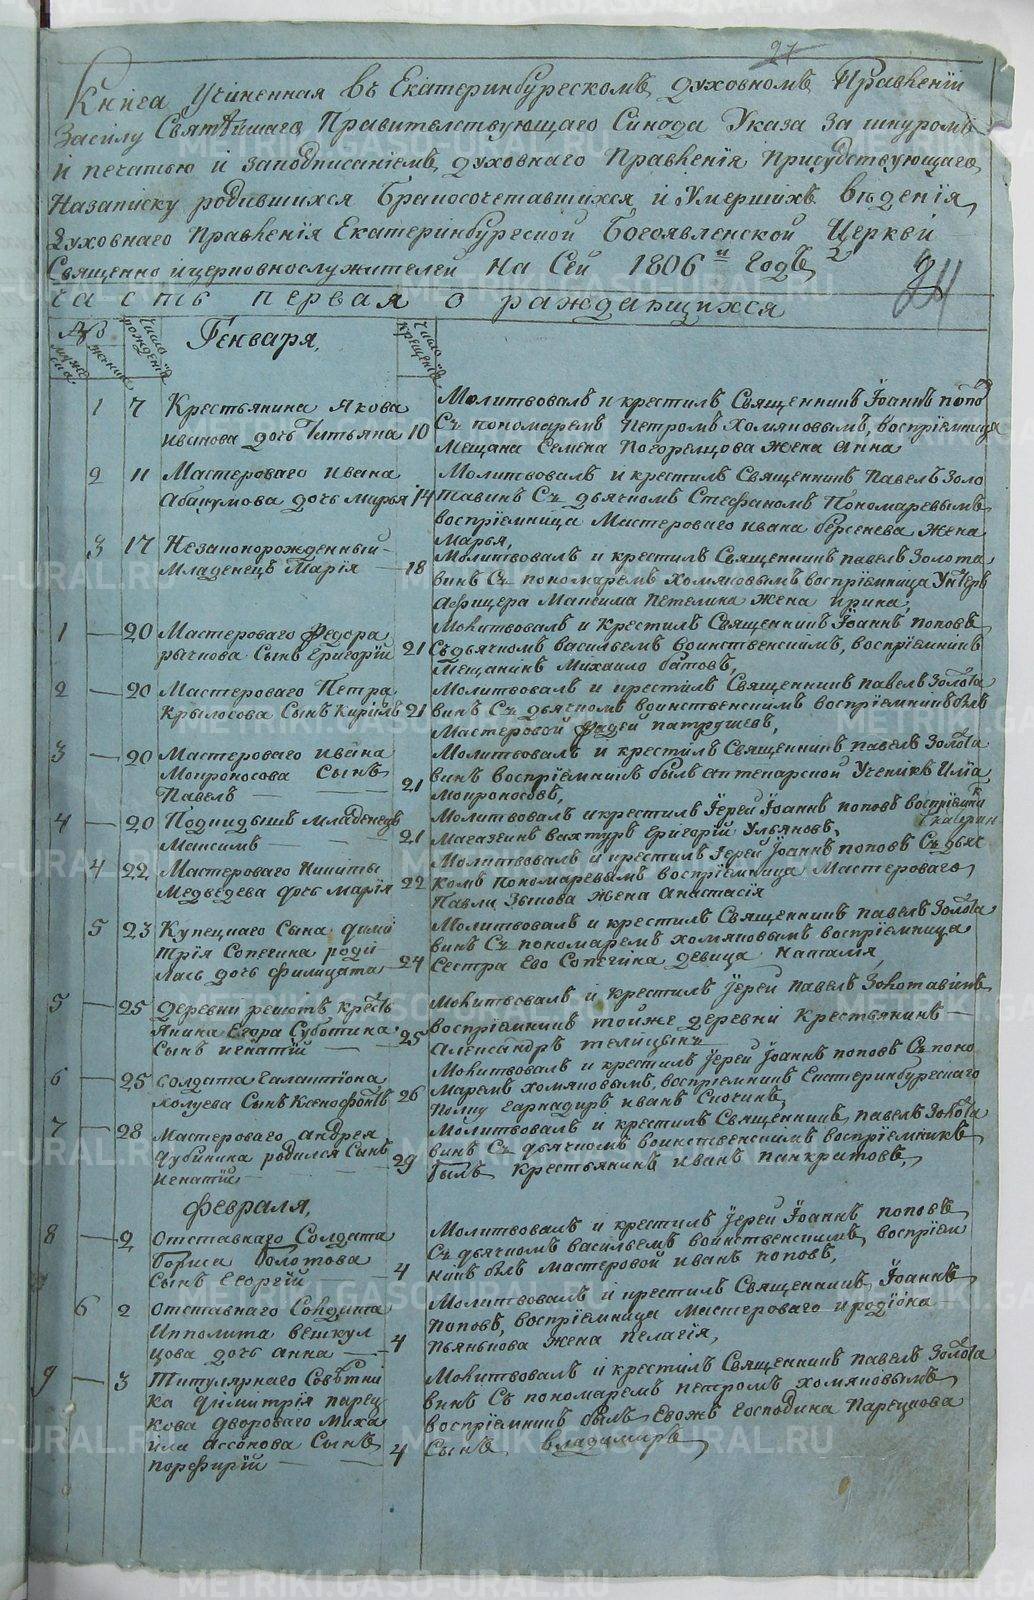 27
Книга Учиненная въ Екатеринбурескомъ духовномъ Правленіи
Засилу Святѣйшаго Правителствующаго Синода Указа За шнуромъ
И печатью и заподписаніемъ духовнаго Правленія Присудствующаго
Назаписку родившихся бракосочетавшихся и Умершихъ вѣденія
Духовнаго Правленія Екатеринбурской Богоявленской Церкви
Священно ицерковнослужителей На Сей 1806й Годъ
24
часть первая о раждающихся
Число рожденія
Генваря,
Число крещенія
1 7 Крестьянина Якова
Иванова дочь Татьяна 10
Молитвовалъ и крестилъ Священникъ Іоаннъ попо
Съ пономаремъ Петромъ Хомяковымъ, воспріемница
Мещана Семена Погорелцова Жена Анна
2 11 Мастероваго ивана
Абакумова дочь марья 14
Молитвовалъ и крестилъ Священникъ Павелъ Золо
тавинъ Съ дьячкомъ Стефаномъ Пономаревымъ
воспріемница Мастероваго ивана берсенева Жена
Марья,
3 17 Незаконорожденный
Младенецъ Марія 18
Молитвовалъ и крестилъ Священникъ павелъ Золота
винъ Съ пономаремъ Хомяковымъ воспріемница Унтеръ
Афицера Максима Петелина Жена ирина,
1 20 Мастероваго Федора
рычкова Сынъ Григорій 21
Молитвовалъ и крестилъ Священникъ Іоаннъ поповъ
Съдьячкомъ васильемъ воинственскимъ, воспріемникъ
Мещанинъ Михаило батовъ,
2 20 Мастероваго Петра
Крылосова Сынъ Кирилъ 21
Молитвовалъ и крестилъ Священникъ павелъ Золота
винъ Съ дьячкомъ воинственскимъ воспріемникъ былъ
Мастеровой Фадей патрушевъ,
3 20 Мастероваго ивана
Мокроносова Сынъ
Павелъ 21
Молитвовалъ и крестилъ Священникъ павелъ Золота
винъ воспріемникъ былъ аптекарской Ученикъ Илія
Мокроносовъ,
4 20 Подкидышъ младенецъ
Максимъ 21
Молитвовалъ и крестилъ Іерей Іоаннъ поповъ воспріемни
Магазеинъ вахтуръ Григорій Ульяновъ,
4 22 Мастероваго Никиты
Медведева дочь марія 22
Молитвовалъ и крестилъ Іерей Іоаннъ поповъ Съ дьяч
комъ Пономаревымъ воспріемница Мастероваго
Павла Зыкова Жена Анастасія
5 23 Купецкаго Сына дими
трія Сопегина роди
лась дочь Филицата 24
Молитвовалъ и крестилъ Священникъ павелъ Золота
винъ Съ пономаремъ хомяковымъ воспріемница
Сестра Ево Сопегина девица Наталія,
5 25 Деревни решотъ кресть
янина Егора Суботина
Сынъ игнатій 25
Молитвовалъ и крестилъ Іерей Павелъ Золотавинъ
воспріемникъ тойже деревни Крестьянинъ
Александръ телицынъ
6 25 Солдата Галактіона
Холуева Сынъ Ксенофонтъ 26
Молитвовалъ и крестилъ Іерей Іоаннъ поповъ Съ поно
маремъ хомяковымъ, воспріемникъ Екатеринбурескаго
Полку гарнадиръ иванъ Скочинъ
7 28 Мастероваго андрея
Дубинина родился Сынъ
игнатій 29
Молитвовалъ и крестилъ Священникъ павелъ Золота
винъ Съ дьячкомъ воинственскимъ воспріемникъ
былъ Крестьянинъ иванъ панкратовъ,
Февраля,
8 2 Отставнаго Солдата
Бориса Болотова
Сынъ Георгій 4
Молитвовалъ и крестилъ Іерей Іоаннъ поповъ
Съ дьячкомъ васильемъ воинственскимъ, воспріем
никъ былъ мастеровой иванъ поповъ,
6 2 Отставнаго Солдата
Ипполита вешкул
цова дочь анна 4
Молитвовалъ и крестилъ Священникъ Іоаннъ
Поповъ, воспріемница Мастероваго иродіона
Пьянькова жена Пелагія,
9 3 Титулярнаго Совѣтни
ка димитрія
дворовago Миха
ила Ассонова Сынъ
порфирій 4
Молитвовалъ и крестилъ Священникъ Павелъ Золота
винъ Съ пономаремъ петромъ хомяковымъ
воспріемникъ былъ Евожъ господина
Сынъ владимиръ